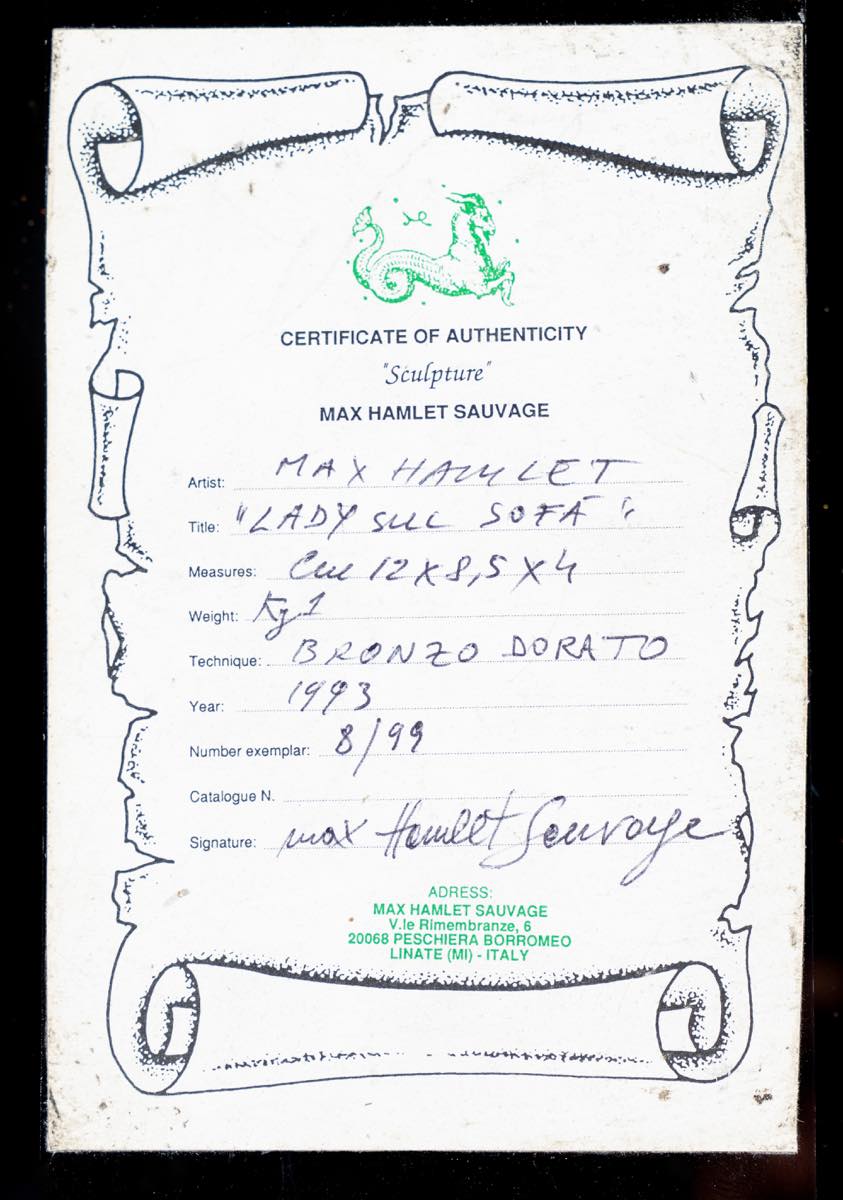 CERTIFICATE OF AUTHENTICITY
"Sculpture"
MAX HAMLET SAUVAGE
Artist: MAX HAMLET
Title: "LADY SUL SOFÀ"
Measures: Cm 12 X 8,5 X 4
Weight: Kg 1
Technique: BRONZO DORATO
Year: 1993
Number exemplar: 8/99
Catalogue N.
Signature: max Hamlet Sauvage
ADRESS:
MAX HAMLET SAUVAGE
V.le Rimembranze, 6
20068 PESCHIERA BORROMEO
LINATE (MI) - ITALY